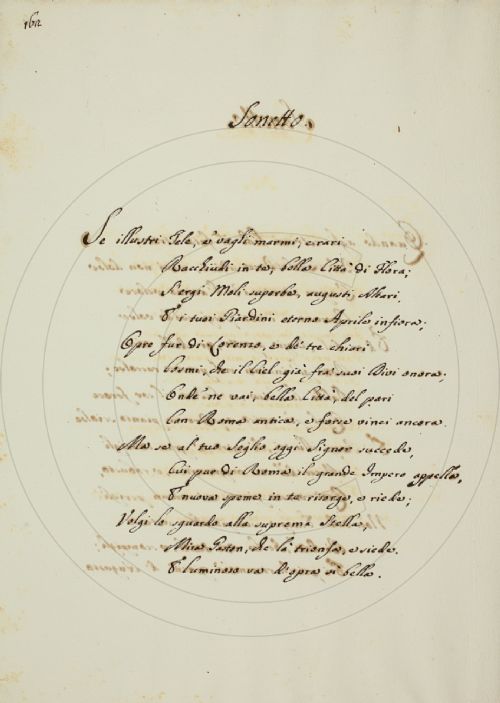 162
Sonetto.
Se illustri Tele, e vaghi marmi, e rari
Racchiudi in te, bella Città di Flora;
S'ergi Moli superbe, augusti Altari,
E i tuoi Giardini eterno Aprile infiora;
Opre fur di Lorenzo, e de' tre chiari
Cosmi, che il Ciel già frà suoi Divi onora;
Onde ne vai, bella Città, del pari
Con Roma antica, e forse vinci ancora.
Ma se al tuo Soglio oggi Signor succede,
Cui pur di Roma il grande Impero appella,
E nuova speme in te risorge, e riede;
Volgi lo sguardo alla suprema Stella,
Mira Gaston, che là trionfa, e siede
E luminoso va d'opra sì bella.